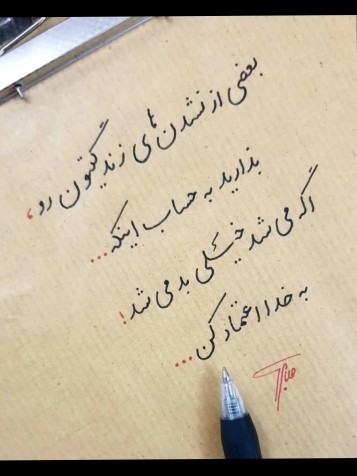 بعضی از نشدن های زندگیتون رو،
بذارید به حساب اینکه...
اگه می شد خیلی بد می شد!
به خدا اعتماد کن...